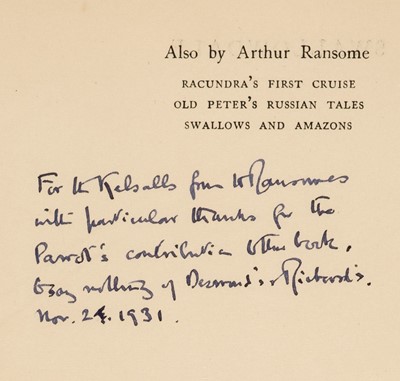 Also by Arthur Ransome
RACUNDRA'S FIRST CRUISE
OLD PETER'S RUSSIAN TALES
SWALLOWS AND AMAZONS
For the Kelsalls from the Ransomes
with particular thanks for the
Parrot's contribution to the book,
to say nothing of Desmond's & Richard's.
Nov. 24. 1931.